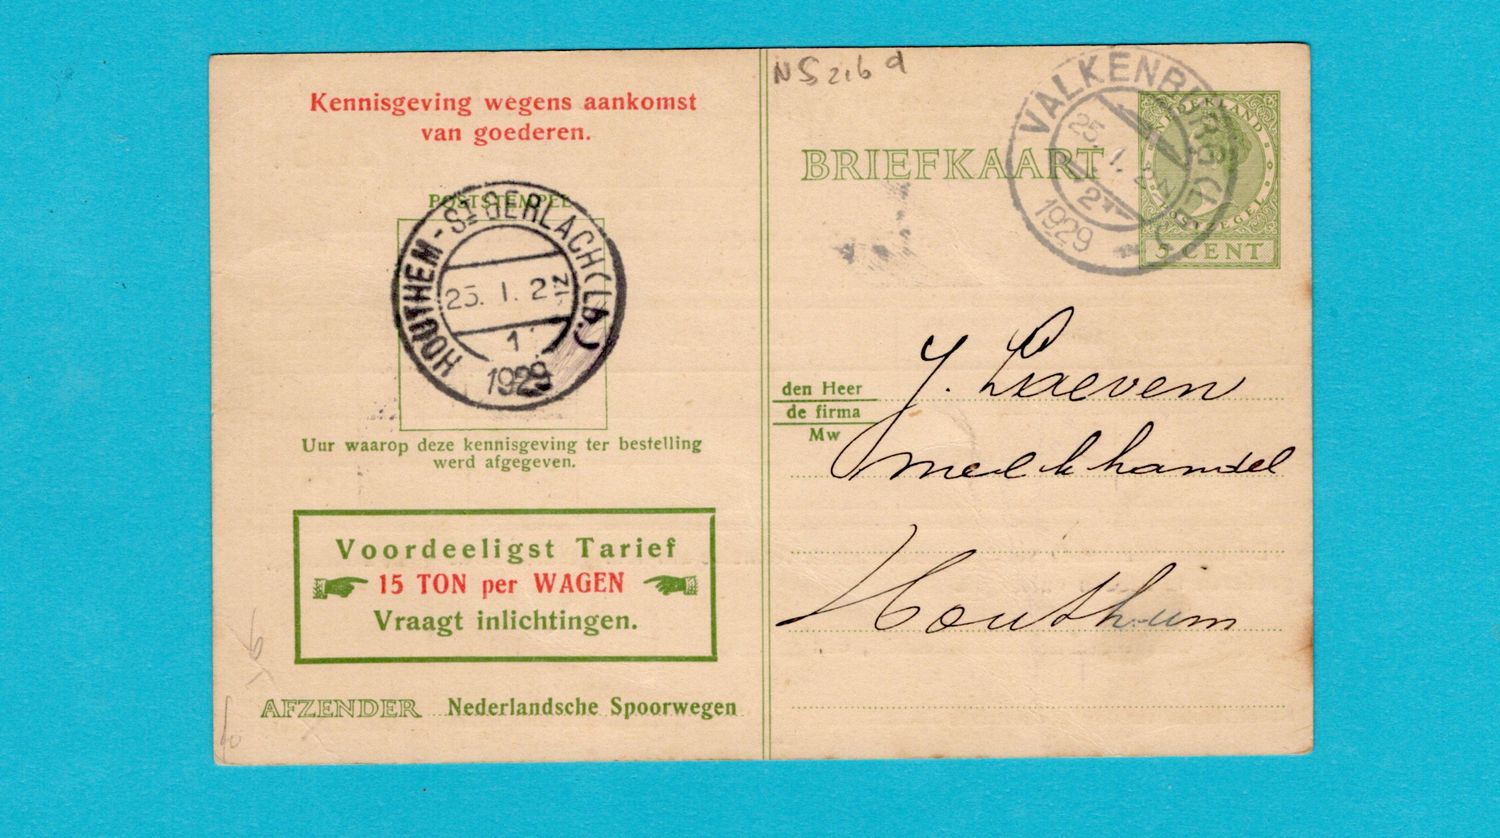 Kennisgeving wegens aankomst
van goederen.
POSTSTEMPEL
HOUTHEM - St GERLACH (Lb.)
1
1929
Uur waarop deze kennisgeving ter bestelling
werd afgegeven.
Voordeeligst Tarief
15 TON per WAGEN
Vraagt inlichtingen.
AFZENDER Nederlandsche Spoorwegen
BRIEFKAART
NEDERLAND
5 CENT
VALKENBURG
1929
den Heer
de firma
Mw
J. Laeven
melkhandel
Houthem